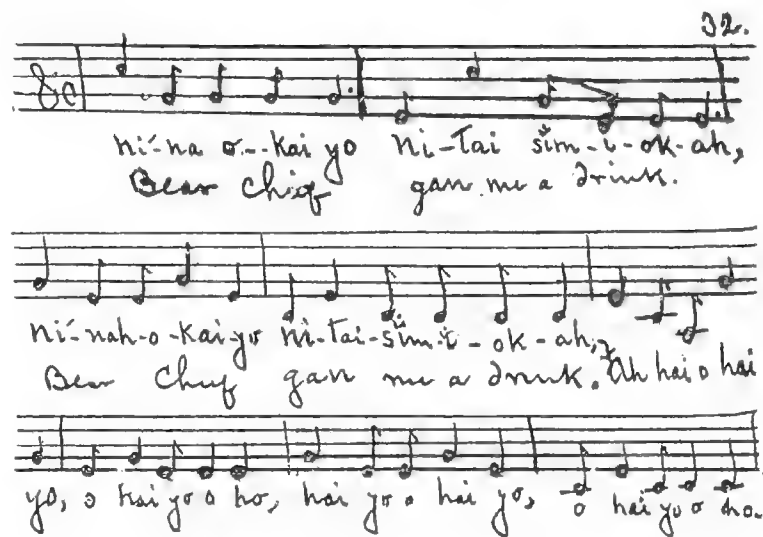 32.
ni-na o--kai yo ni-tai sim-i-ok-ah,
Bear chief gave me a drink.
ni-nah-o-kai-yo ni-tai-sim-i-ok-ah,
Bear Chief gave me a drink. Ah hai o hai
yo, o hai yo o ho, hai yo o hai yo, o hai yo o ho.